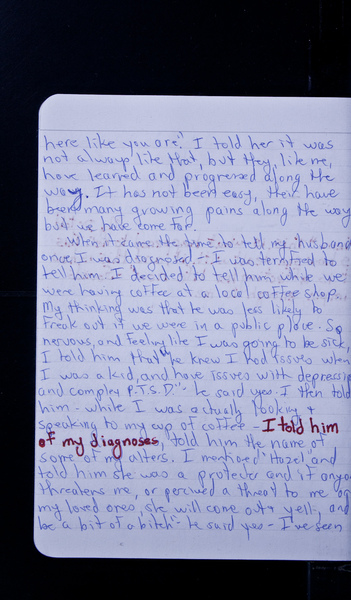 here like you are." I told her it was
not always like that, but they, like me,
have learned and progressed along the
way. It has not been easy, their have
been many growing pains along the way
but we have come far.
When it came the time to tell my husband
once I was diagnosed - I was terrified to
tell him. I decided to tell him while we
were having coffee at a local coffee shop.
My thinking was that he was less likely to
freak out if we were in a public place. So
nervous, and feeling like I was going to be sick,
I told him that "he knew I had issues when
I was a kid, and have issues with depression
and complex P.T.S.D." - he said yes. I then told
him - while I was actually looking +
speaking to my cup of coffee - I told him
of my diagnoses, told him the name of
some of my alters. I mentioned "Hazel" and
told him she was a protever and if anyone
threatens me, or percived a threat to me or
my loved ones, she will come out + yell, and
be a bit of a bitch - he said yes - I've seen